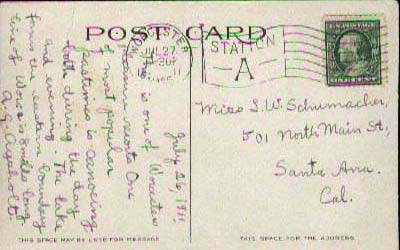 POST CARD
WORCESTER
JUL 27
1911
STATION
A
July 26, 1911,
This is one of Worcester
Pleasure resorts One
of most popular
pastimes is canoeing
both during the day
and evening. The lake
forms the eastern boundary
line of Worc. is 8 miles long.
Miss S. W. Schumacher,
501 North Main St,
Santa Ana.
Cal.
THIS SPACE MAY BE USED FOR MESSAGE
THIS SPACE FOR THE ADDRESS.